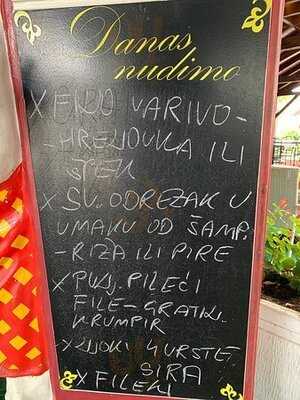 Danas
nudimo
X EKO VARIVO-
-HRENOVKA ILI
X SV. ODREZAK U
UMAKU OD ŠAMP.
-RIZA ILI PIRE
X PUNJ. PILEĆI
FILE-GRATIN.
KRUMPIR
4 VRSTE
SIRA
X FILEKI